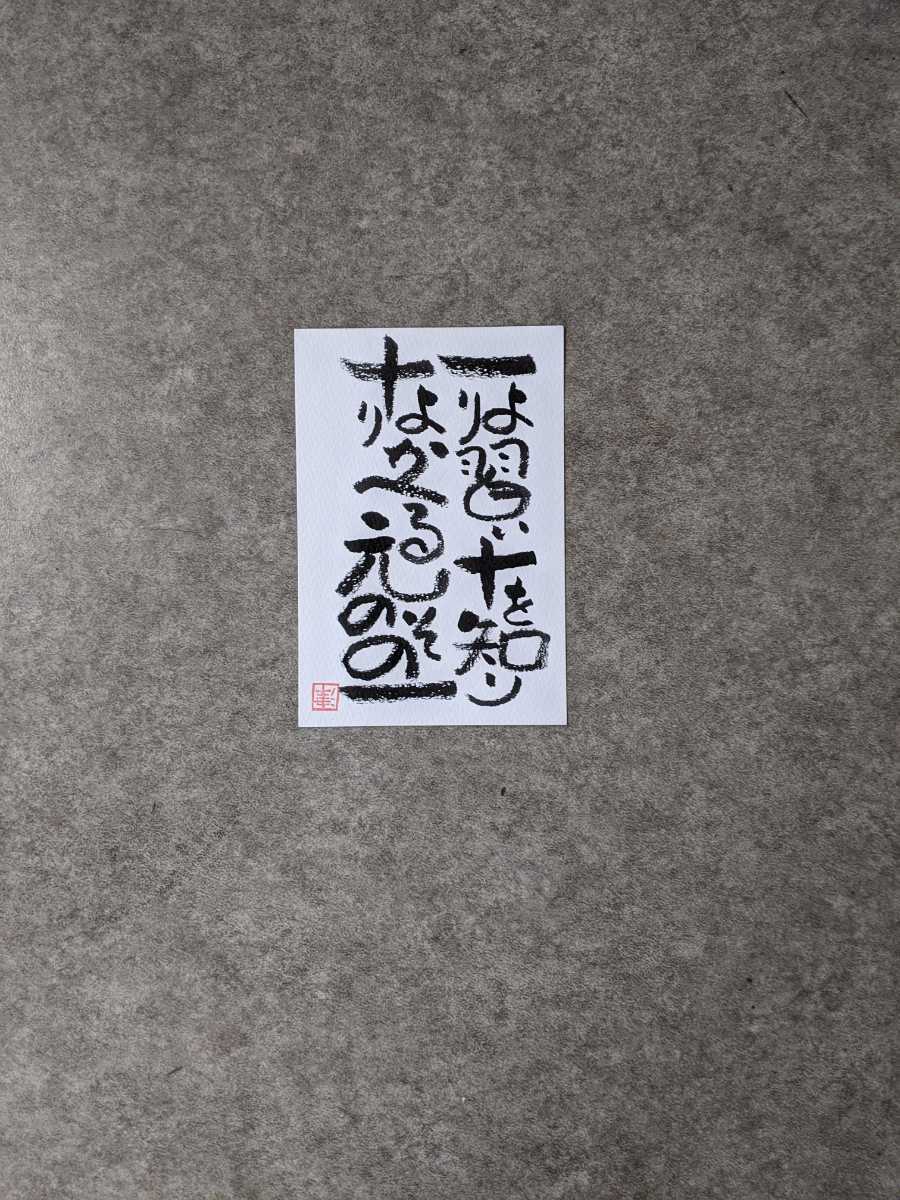 一より習い十を知り
十よりかへる元のその一